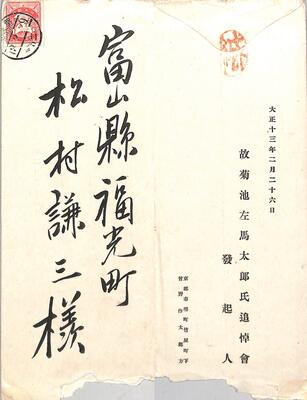 大正十三年二月二十六日
故菊池左馬太郎氏追悼會
發起人
京都市堺町竹屋町下
太郎方
富山縣福光町
松村謙三樣